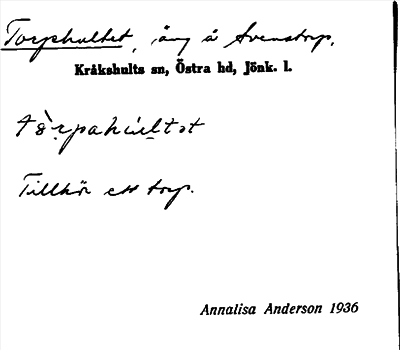 Torphultet, äng å Svenstorp,
Kråkshults sn, Östra hd, Jönk. l.
Tillhör ett torp.
Annalisa Anderson 1936